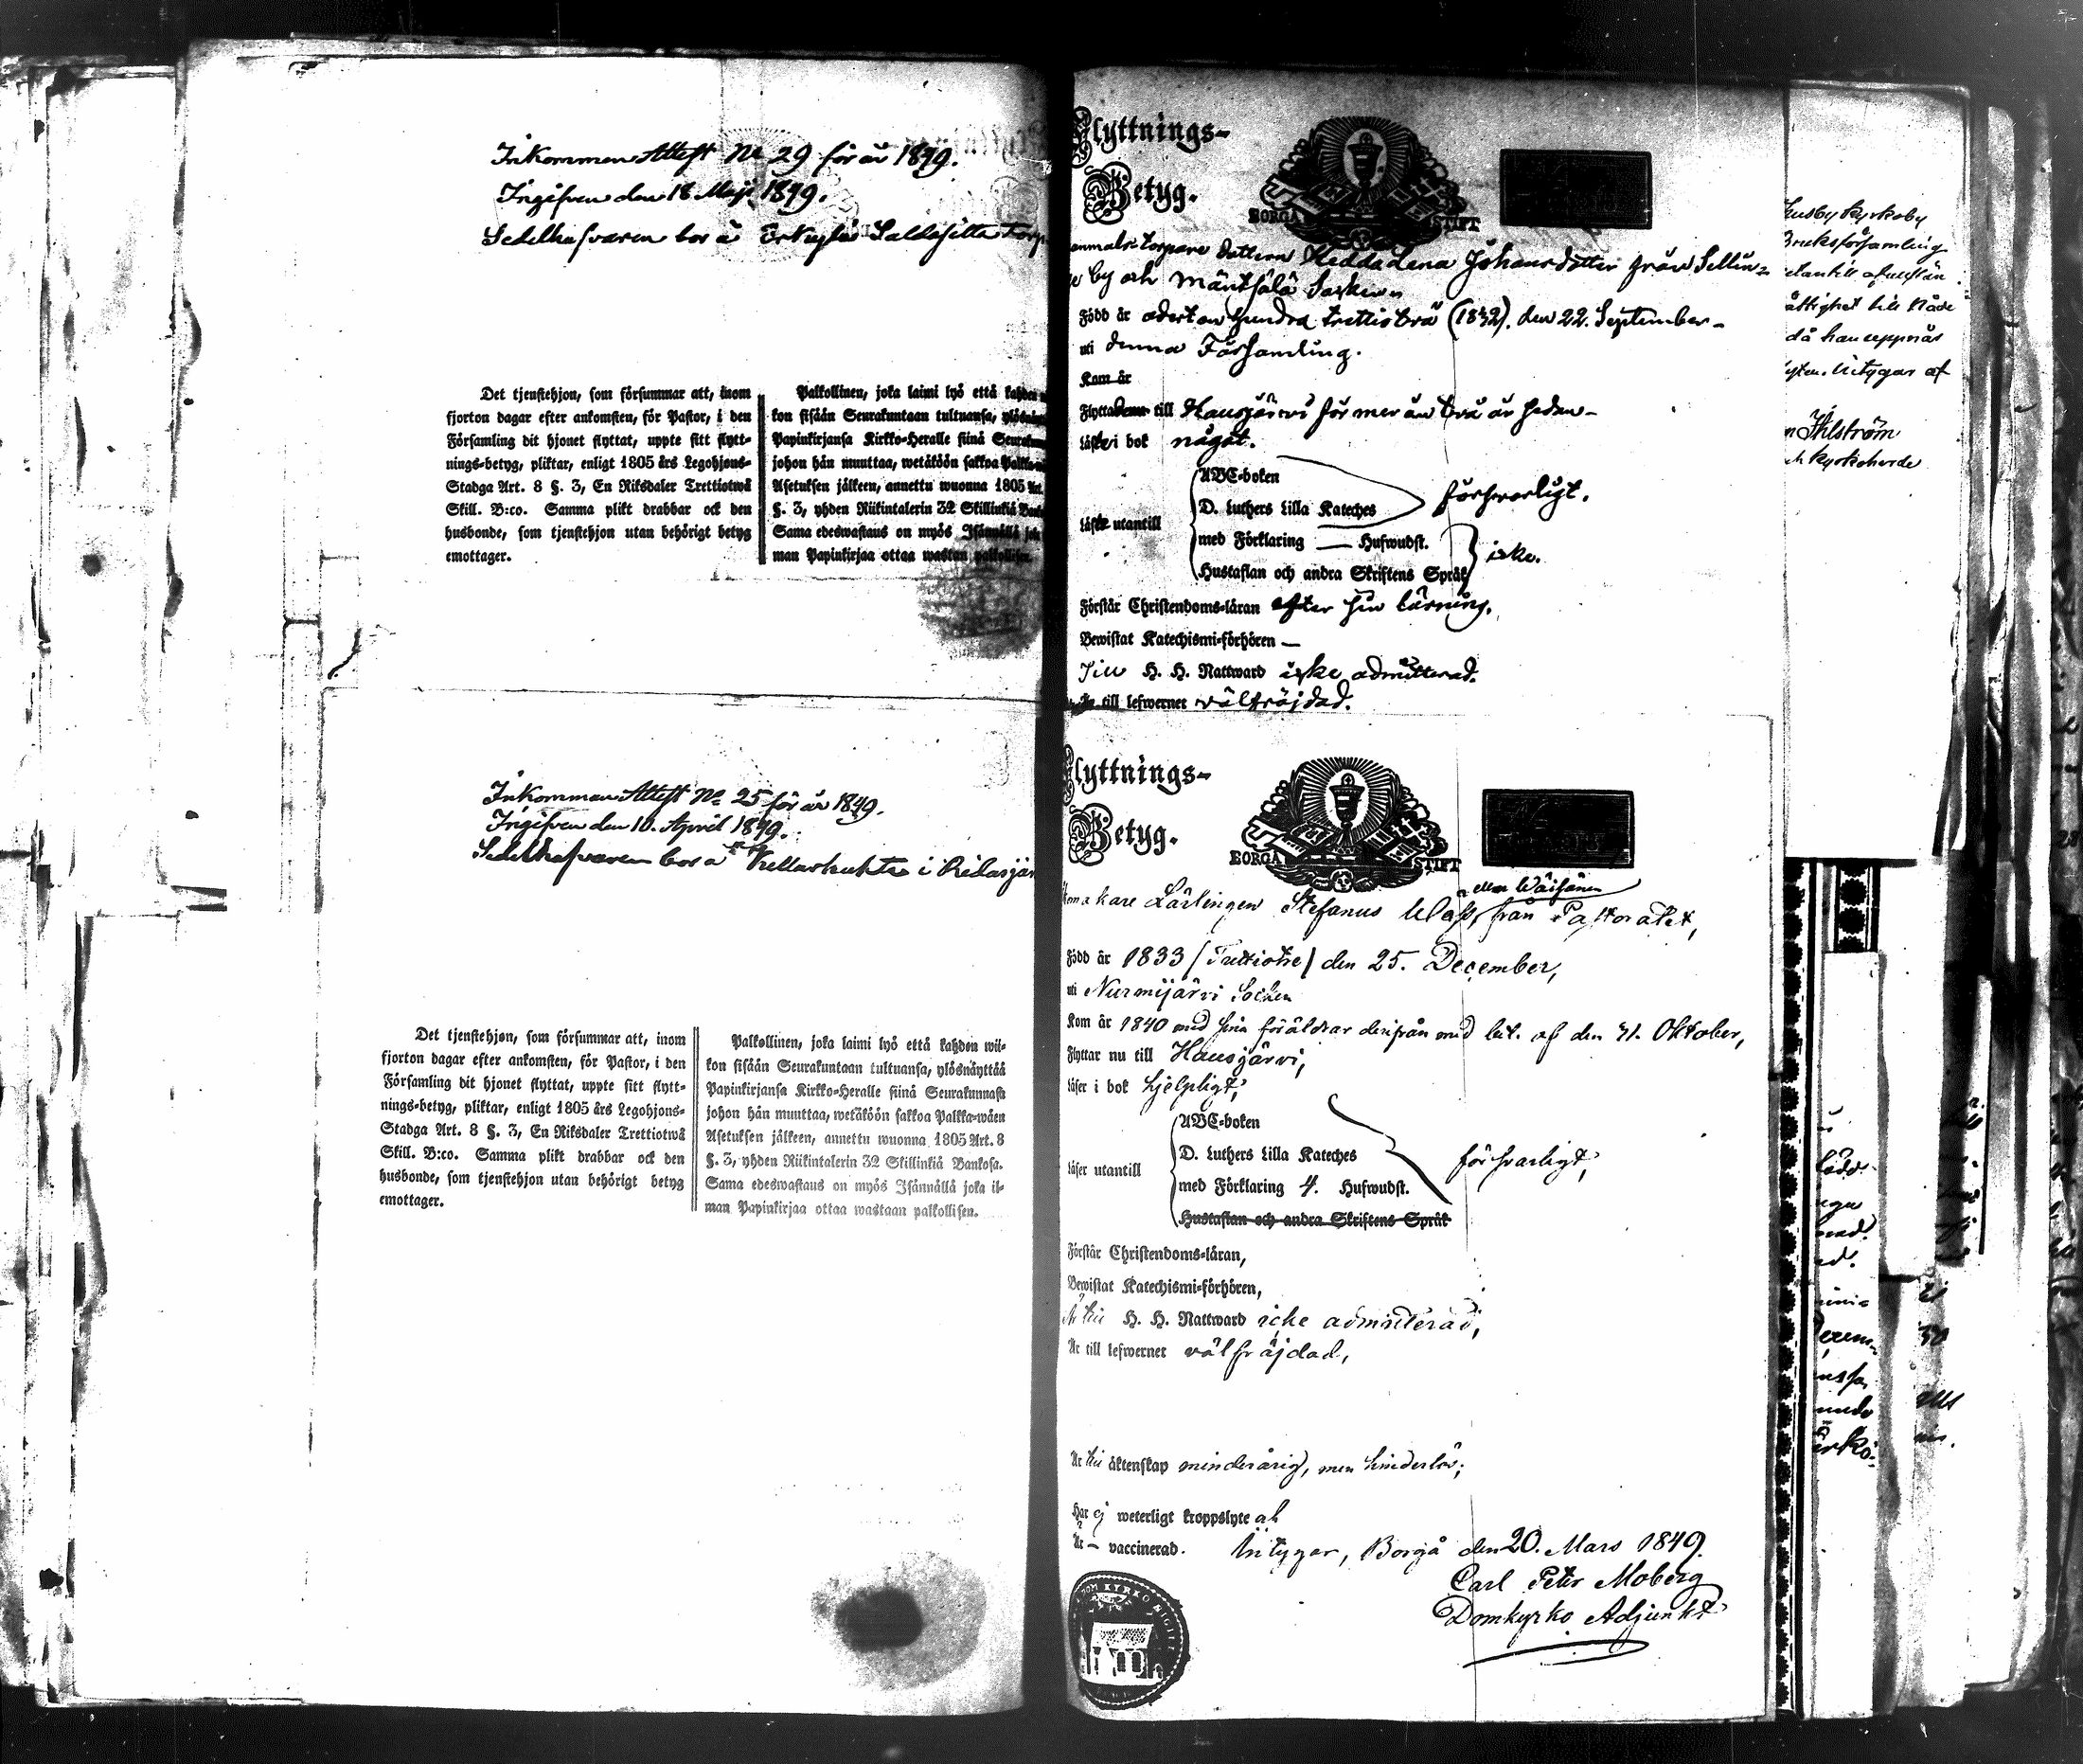 Inkommen Attest No 29 för år 1849.
Ingifven den 18 Maji 1849.
Sedelhafvaren bor å Erkylä Saldesilta Torp
Det tjenstehjon, som försummar att, inom
fjorton dagar efter ankomsten, för Pastor, i den
Församling dit hjonet flyttat, uppte sitt flytt-
nings-betyg, pliktar, enligt 1805 års Legohjons-
Stadga Art. 8 §. 3, En Riksdaler Trettiotwå
Skill. B:co. Samma plikt drabbar ock den
husbonde, som tjenstehjon utan behörigt betyg
emottager.
Palkollinen, joka laimi lyö että kahden
kon sisään Seurakuntaan tultuansa, ylösnäyt
Papinkirjansa Kirkko-Heralle siinä Seurakun
johon hän muuttaa, wetäköön sakkoa Palkka
Asetuksen jälkeen, annettu wuonna 1805 Art.
§. 3, yhden Riikintalerin 32 Skillinkiä Banko
Sama edeswastaus on myös Isännällä jok
man Papinkirjaa ottaa wastan palkollisen.
Inkommen Attest No 25 för år 1849.
Ingifven den 10. April 1849.
Sedelhafvaren bor å Kellarhuhta i Ridasjär
Det tjenstehjon, som försummar att, inom
fjorton dagar efter ankomsten, för Pastor, i den
Församling dit hjonet flyttat, uppte sitt flytt-
nings-betyg, pliktar, enligt 1805 års Legohjons-
Stadga Art. 8 §. 3, En Riksdaler Trettiotwå
Skill. B:co. Samma plikt drabbar ock den
husbonde, som tjenstehjon utan behörigt betyg
emottager.
Palkollinen, joka laimi lyö että kahden wii-
kon sisään Seurakuntaan tultuansa, ylösnäyttää
Papinkirjansa Kirkko-Heralle siinä Seurakunnasa
johon hän muuttaa, wetäköön sakkoa Palkka-wäen
Asetuksen jälkeen, annettu wuonna 1805 Art. 8
§. 3, yhden Riikintalerin 32 Skillinkiä Bankosa.
Sama edeswastaus on myös Isännällä joka il-
man Papinkirjaa ottaa wastaan palkollisen.
Flyttnings-
Betyg.
BORGÅ STIFT
torpare dottern Hedda Lena Johansdotter från Sellin-
ge by och Mäntsälä Socken
Född år adertonhundra trettiotvå (1832). den 22. September
uti denna Församling.
Kom år
Flyttade till Hausjärvi för mer än två år sedan
Läste i bok något.
Läste utantill
ABC-boken
D. Luthers Lilla Kateches
med Förklaring — Hufwudst.
Hustaflan och andra Skriftens Språk
försvarligt.
icke.
Förstår Christendoms-läran efter sin lärning.
Bewistat Katechismi-förhören —
Till H. H. Nattward icke admitterad.
till lefwernet välfräjdad.
Flyttnings-
Betyg.
BORGÅ STIFT
eller Wäisänen
makare Lärlingen Stefanus Klass, från Pastoratet,
Född år 1833 (Trettiotre) den 25. December,
uti Nurmijärvi Socken
Kom år 1840 med sina föräldrar derifrån med bet. af den 31. Oktober,
Flyttar nu till Hausjärvi,
Läser i bok hjelpligt,
Läser utantill
ABC-boken
D. Luthers Lilla Kateches
med Förklaring 4. Hufwudst.
Hustaflan och andra Skriftens Språk
försvarligt,
Förstår Christendoms-läran,
Bewistat Katechismi-förhören,
till H. H. Nattward icke admitterad,
Är till lefwernet välfräjdad,
Är till äktenskap minderårig, men hinderlös;
Har ej weterligt kroppslyte och
Är — vaccinerad. Intygar, Borgå den 20. Mars 1849.
Carl Peter Moberg
Domkyrko Adjunkt
Husby kyrkoby
Bruksförsamling
rättighet till Nåde
då han uppnås
Intygar af
Ahlström
kyrkoherde